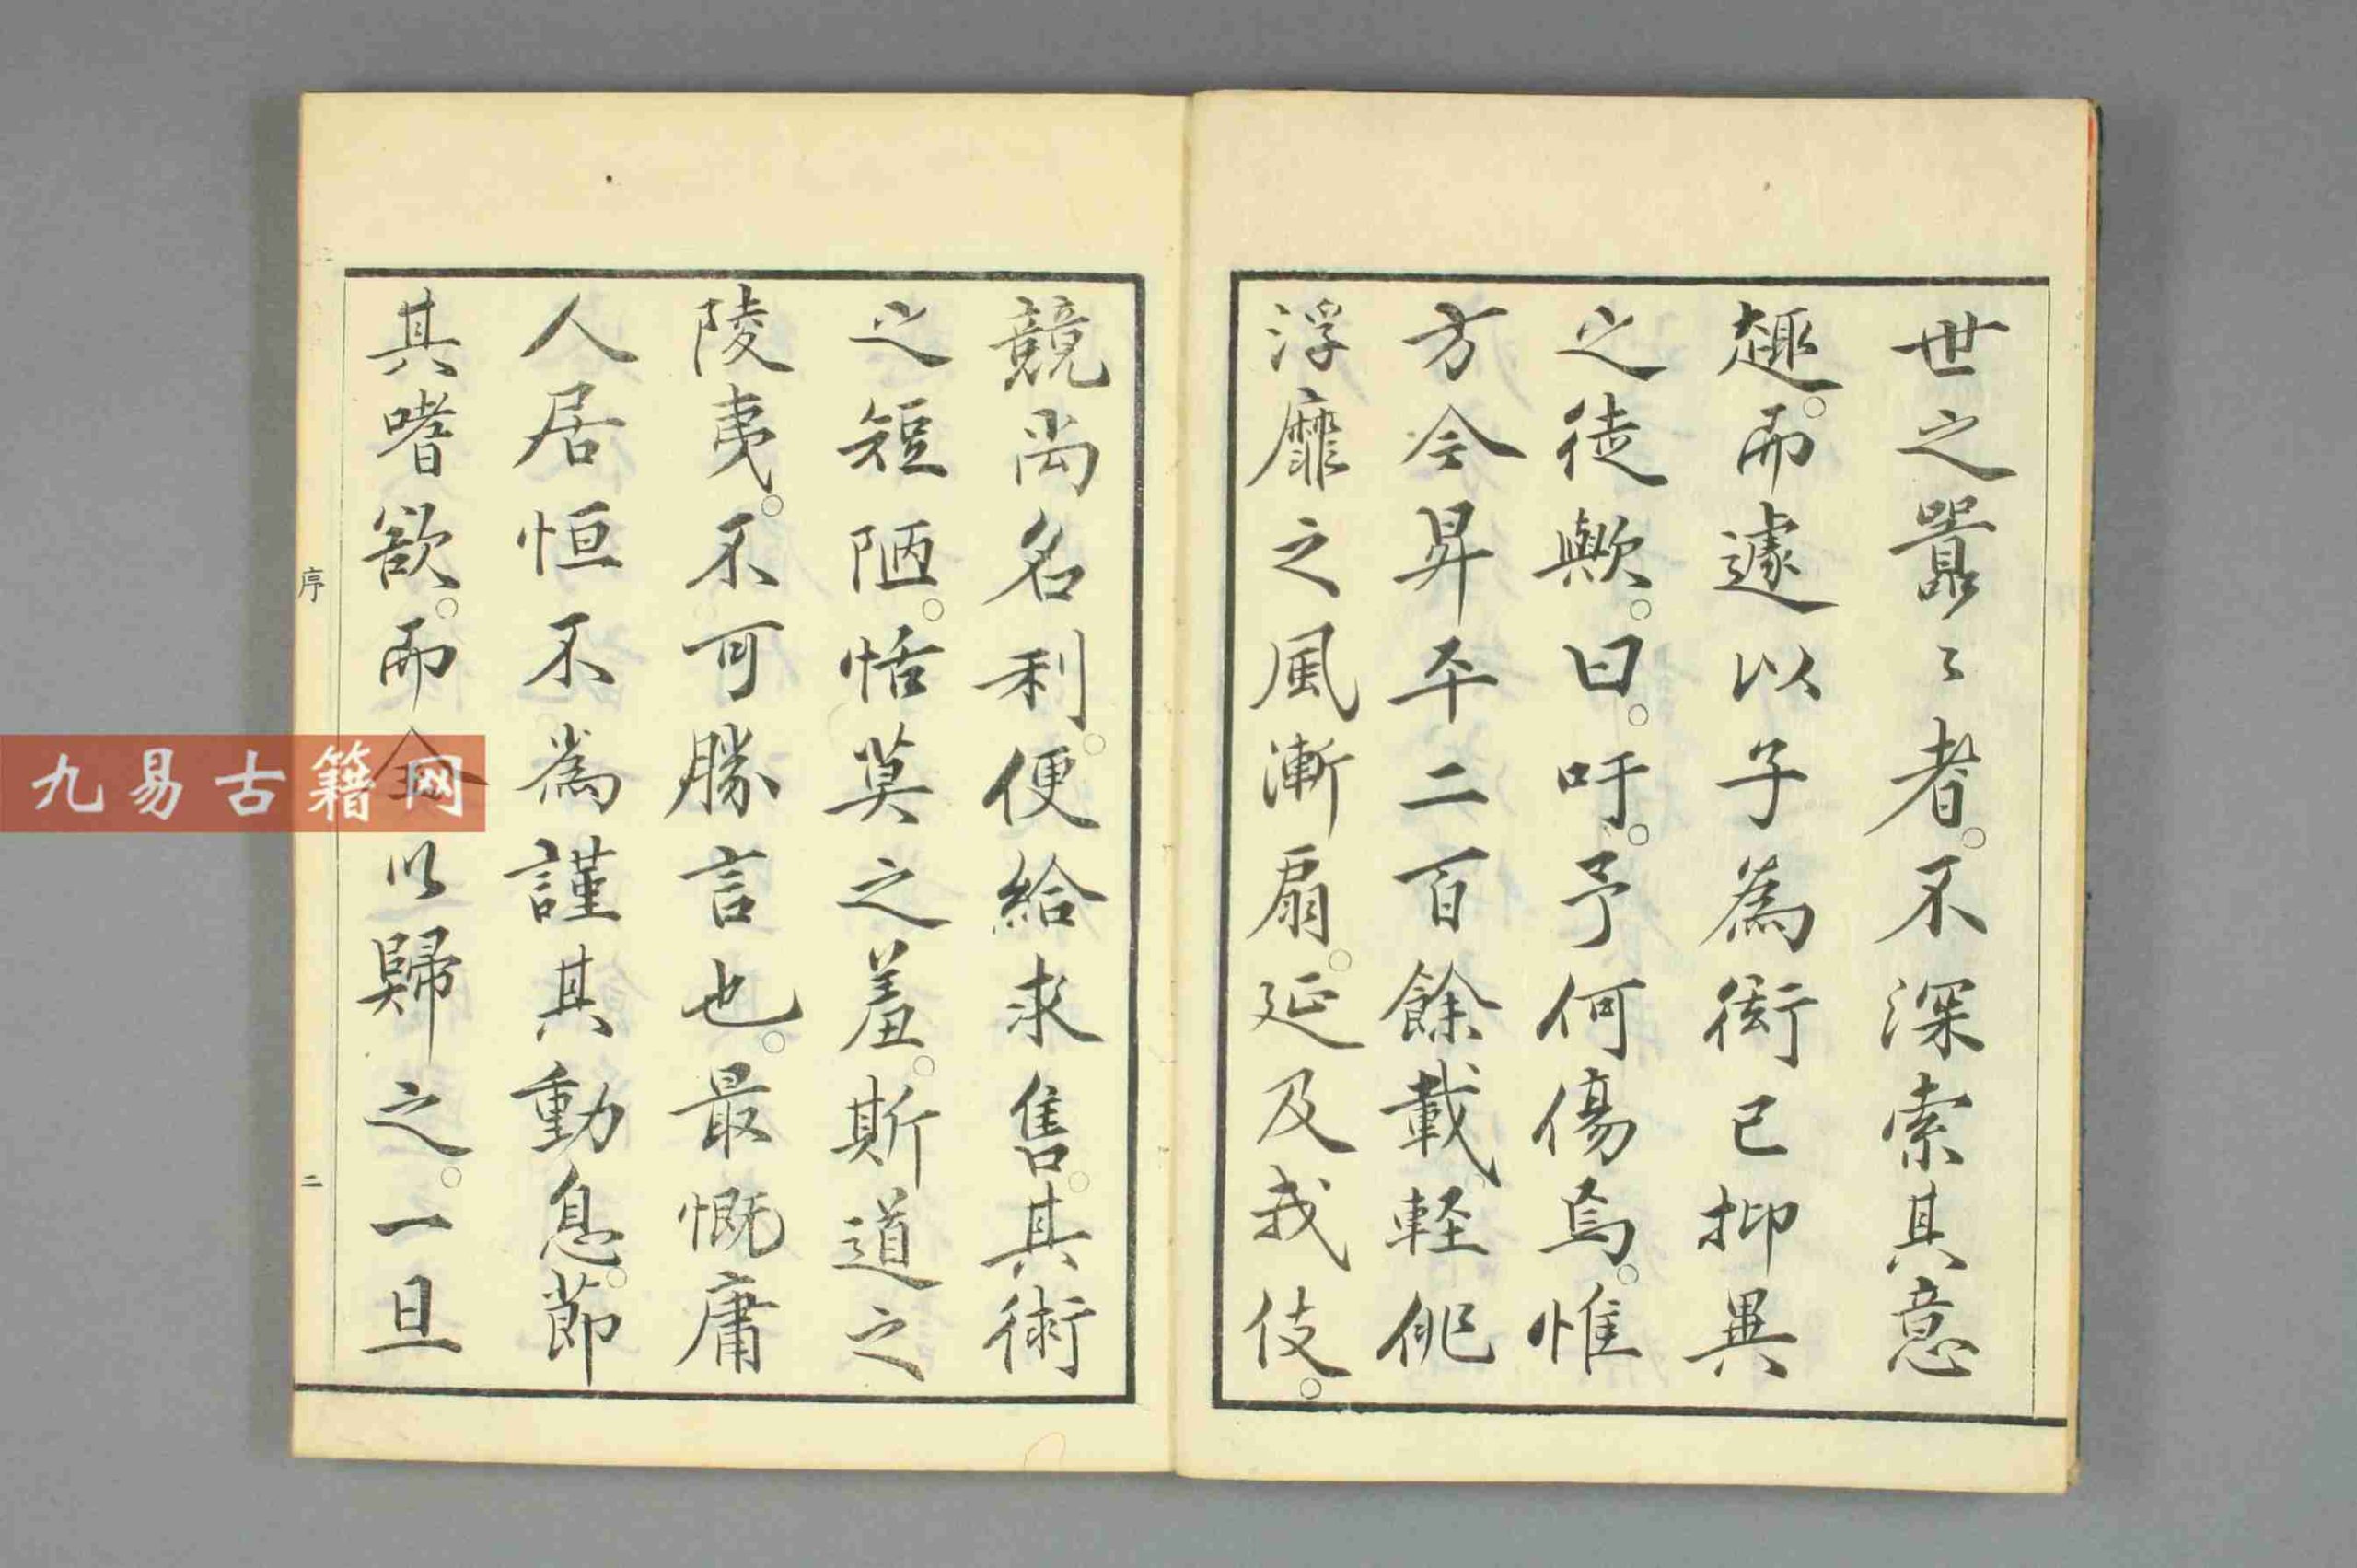 世之囂〻者。不深索其意
趣。而遽以子為衒已抑異
之徒歟。曰。吁。予何傷焉。惟
方今昇平二百餘載軽佻
浮靡之風漸扇。延及我伎。
競尚名利。便給求售。其術
之短陋。恬莫之羞。斯道之
陵夷。不可勝言也。最慨庸
人居恒不為謹其動息。節
其嗜欲。而全以歸之。一旦
序
二
九易古籍网